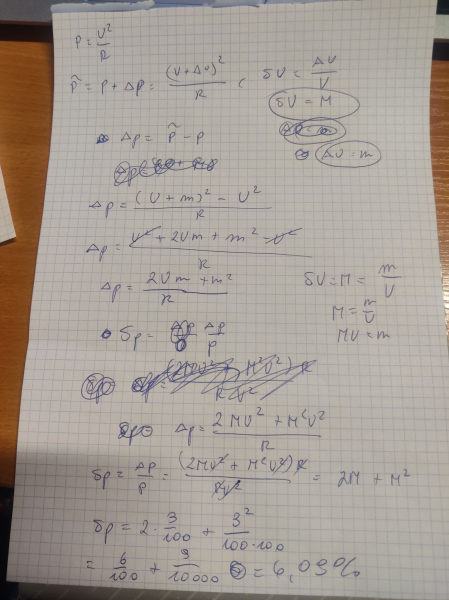 P = U²/R
p̃ = p + Δp = (U+ΔU)²/R , δU = ΔU/U
δU = M
Δp = p̃ - p
ΔU = m
Δp = ((U + m)² - U²)/R
Δp = (U² + 2Um + m² - U²)/R
Δp = (2Um + m²)/R
δU = M = m/U
M = m/U
MU = m
δp = Δp/p
Δp = (2MU² + M²U²)/R
δp = Δp/p = ((2MU² + M²U²)R)/(RU²) = 2M + M²
δp = 2 · 3/100 + 3²/(100·100)
= 6/100 + 9/10000 = 6,09%